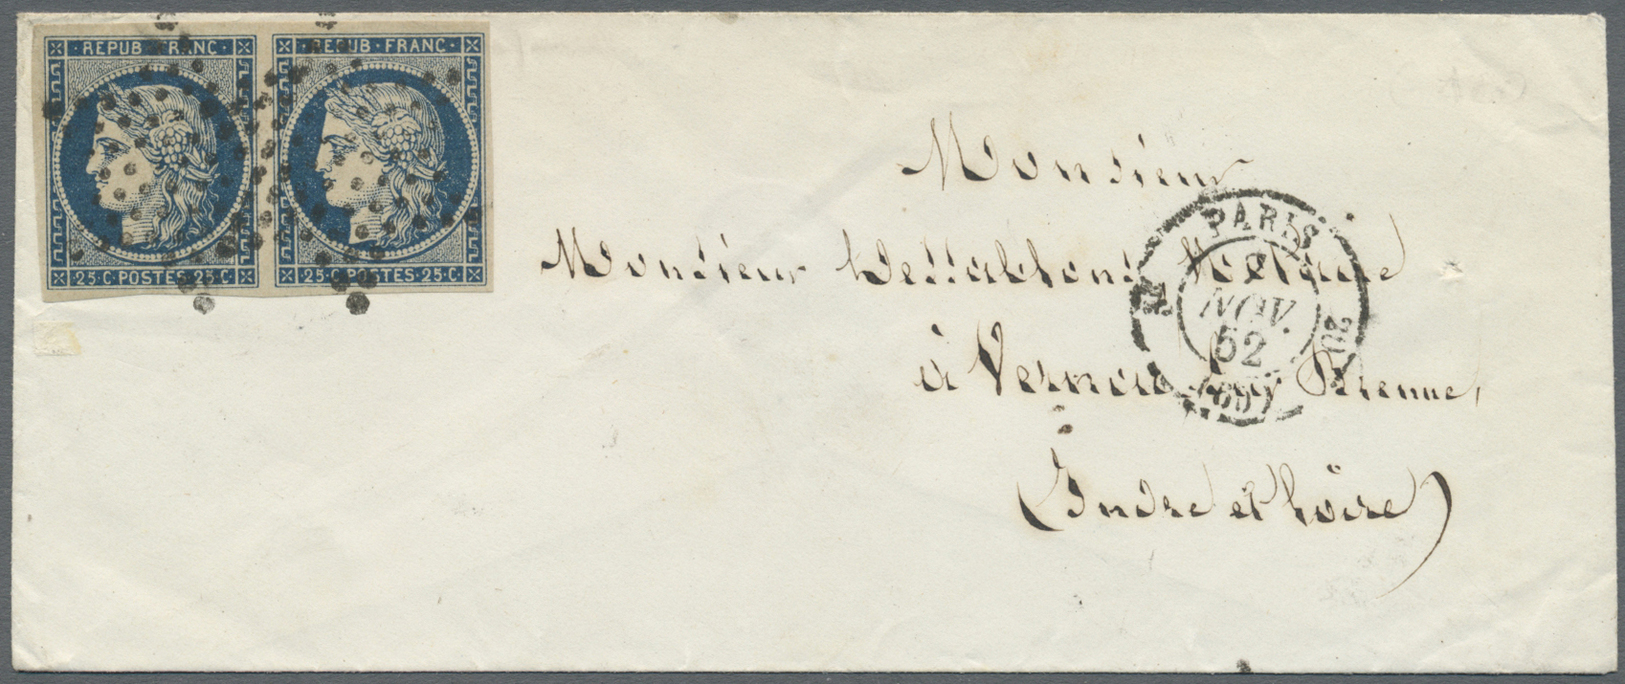 REPUB FRANC
25·C·POSTES·25·C·
REPUB·FRANC·
25·C·POSTES·25·C·
Monsieur
Monsieur Notaire
à Vernou sur Brenne,
(Indre et Loire)
PARIS
NOV.
52
(60)